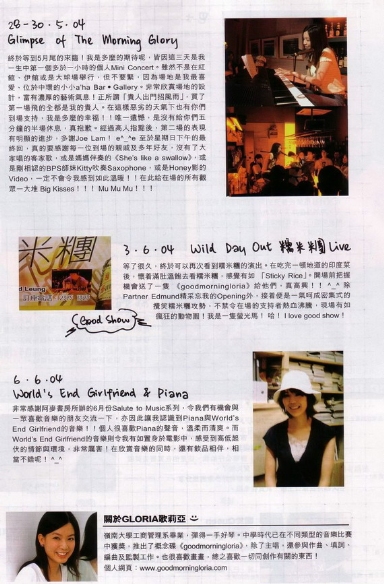 28-30.5.04
Glimpse of The Morning Glory
終於等到5月尾的來臨!我是多麼的期待呢,皆因這三天是我
一生中第一個多於一小時的個人Mini Concert。雖然不是在紅
館,伊館或是大球場舉行,但不要緊,因為場地是我最喜
愛,位於中環的小小a'ha Bar • Gallery。非常欣賞場地的設
計,富有濃厚的藝術氣息!正所謂「貴人出門招風雨」,買了
第一場飛的全都是我的貴人。在這樣惡劣的天氣下也有你們
到場支持,我是多麼的幸福!!唯一遺憾,是沒有給你們五
分鐘的半場休息,真抱歉。經過高人指點後,第二場的表現
有明顯的進步,多謝Joe Lam! e^_^e 至於星期日下午的最
終回,真的要感謝每一位到場的親戚及多年好友,沒有了大
家唱的客家歌,或是媽媽伴奏的《She's like a swallow》,或
是剛相認的BPS師妹Kitty吹奏Saxophone,或是Honey影的
Video,一定不會令我感到如此溫暖!!在此給在場的所有觀
眾一大堆 Big Kisses!!! Mu Mu Mu!!!
米糰
d Leung
3.6.04 Wild Day Out 糯米糰 Live
(Good Show)
等了很久,終於可以再次看到糯米糰的演出。在吃完一頓地道的印度菜
後,懷著滿肚溫飽去看糯米糰,感覺有如「Sticky Rice」。開場前把握
機會送了一隻《goodmorningloria》給他們,真高興!! ^_^ 除
Partner Edmund精采忘我的Opening外,接著便是一氣呵成密集式的
爆笑糯米攻勢,不禁令在場的支持者熱血沸騰,現場有如
瘋狂的動物園!我是一隻螢光馬!哈!I love good show!
6.6.04
World's End Girlfriend & Piana
非常感謝阿麥書房所辦的6月份Salute to Music系列,令我們有機會與
一眾喜愛音樂的朋友交流一下,亦因此讓我認識到Piana與World's
End Girlfriend的音樂!!個人很喜歡Piana的聲音,溫柔而清爽。而
World's End Girlfriend的音樂則令我有如置身於電影中,感受到高低起
伏的情節與環境,非常震撼!在欣賞音樂的同時,還有飲品相伴,相
當不錯呢!^_^
關於GLORIA歌莉亞
嶺南大學工商管理系畢業,彈得一手好琴。中學時代已在不同類型的音樂比賽
中獲獎,推出了概念碟《goodmorningloria》,除了主唱,還參與作曲、填詞、
編曲及監製工作。也很喜歡畫畫,總之喜歡一切同創作有關的東西!
個人網頁:www.goodmorningloria.com